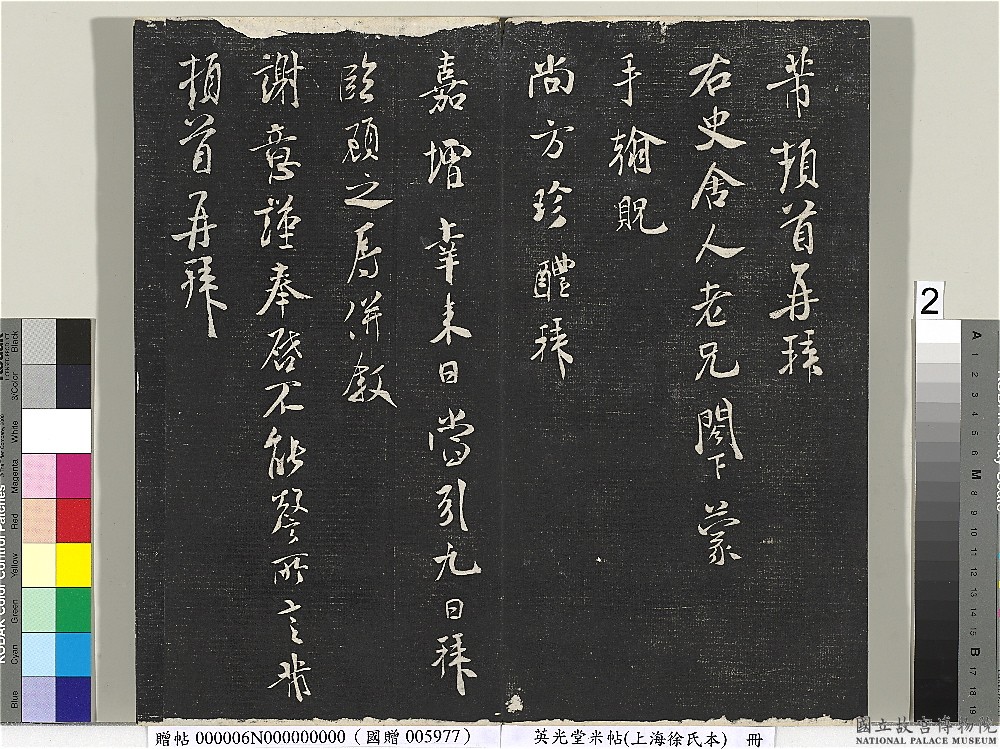 芾頓首再拜
右史舍人老兄閤下蒙
手翰貺
尚方珍醴拜
嘉增幸来日當引九日拜
臨顧之 併敘
謝意謹奉啓不能罄所言芾
頓首再拜
2
贈帖 000006N000000000 (國贈 005977)
英光堂米帖(上海徐氏本) 冊
國立故宮博物院
NATIONAL PALACE MUSEUM
Black
3/Color
White
Magenta
Red
Yellow
Green
Cyan
Blue
A 1 2 3 4 5 6 M 8 9 10 11 12 13 14 15 B 17 18 19